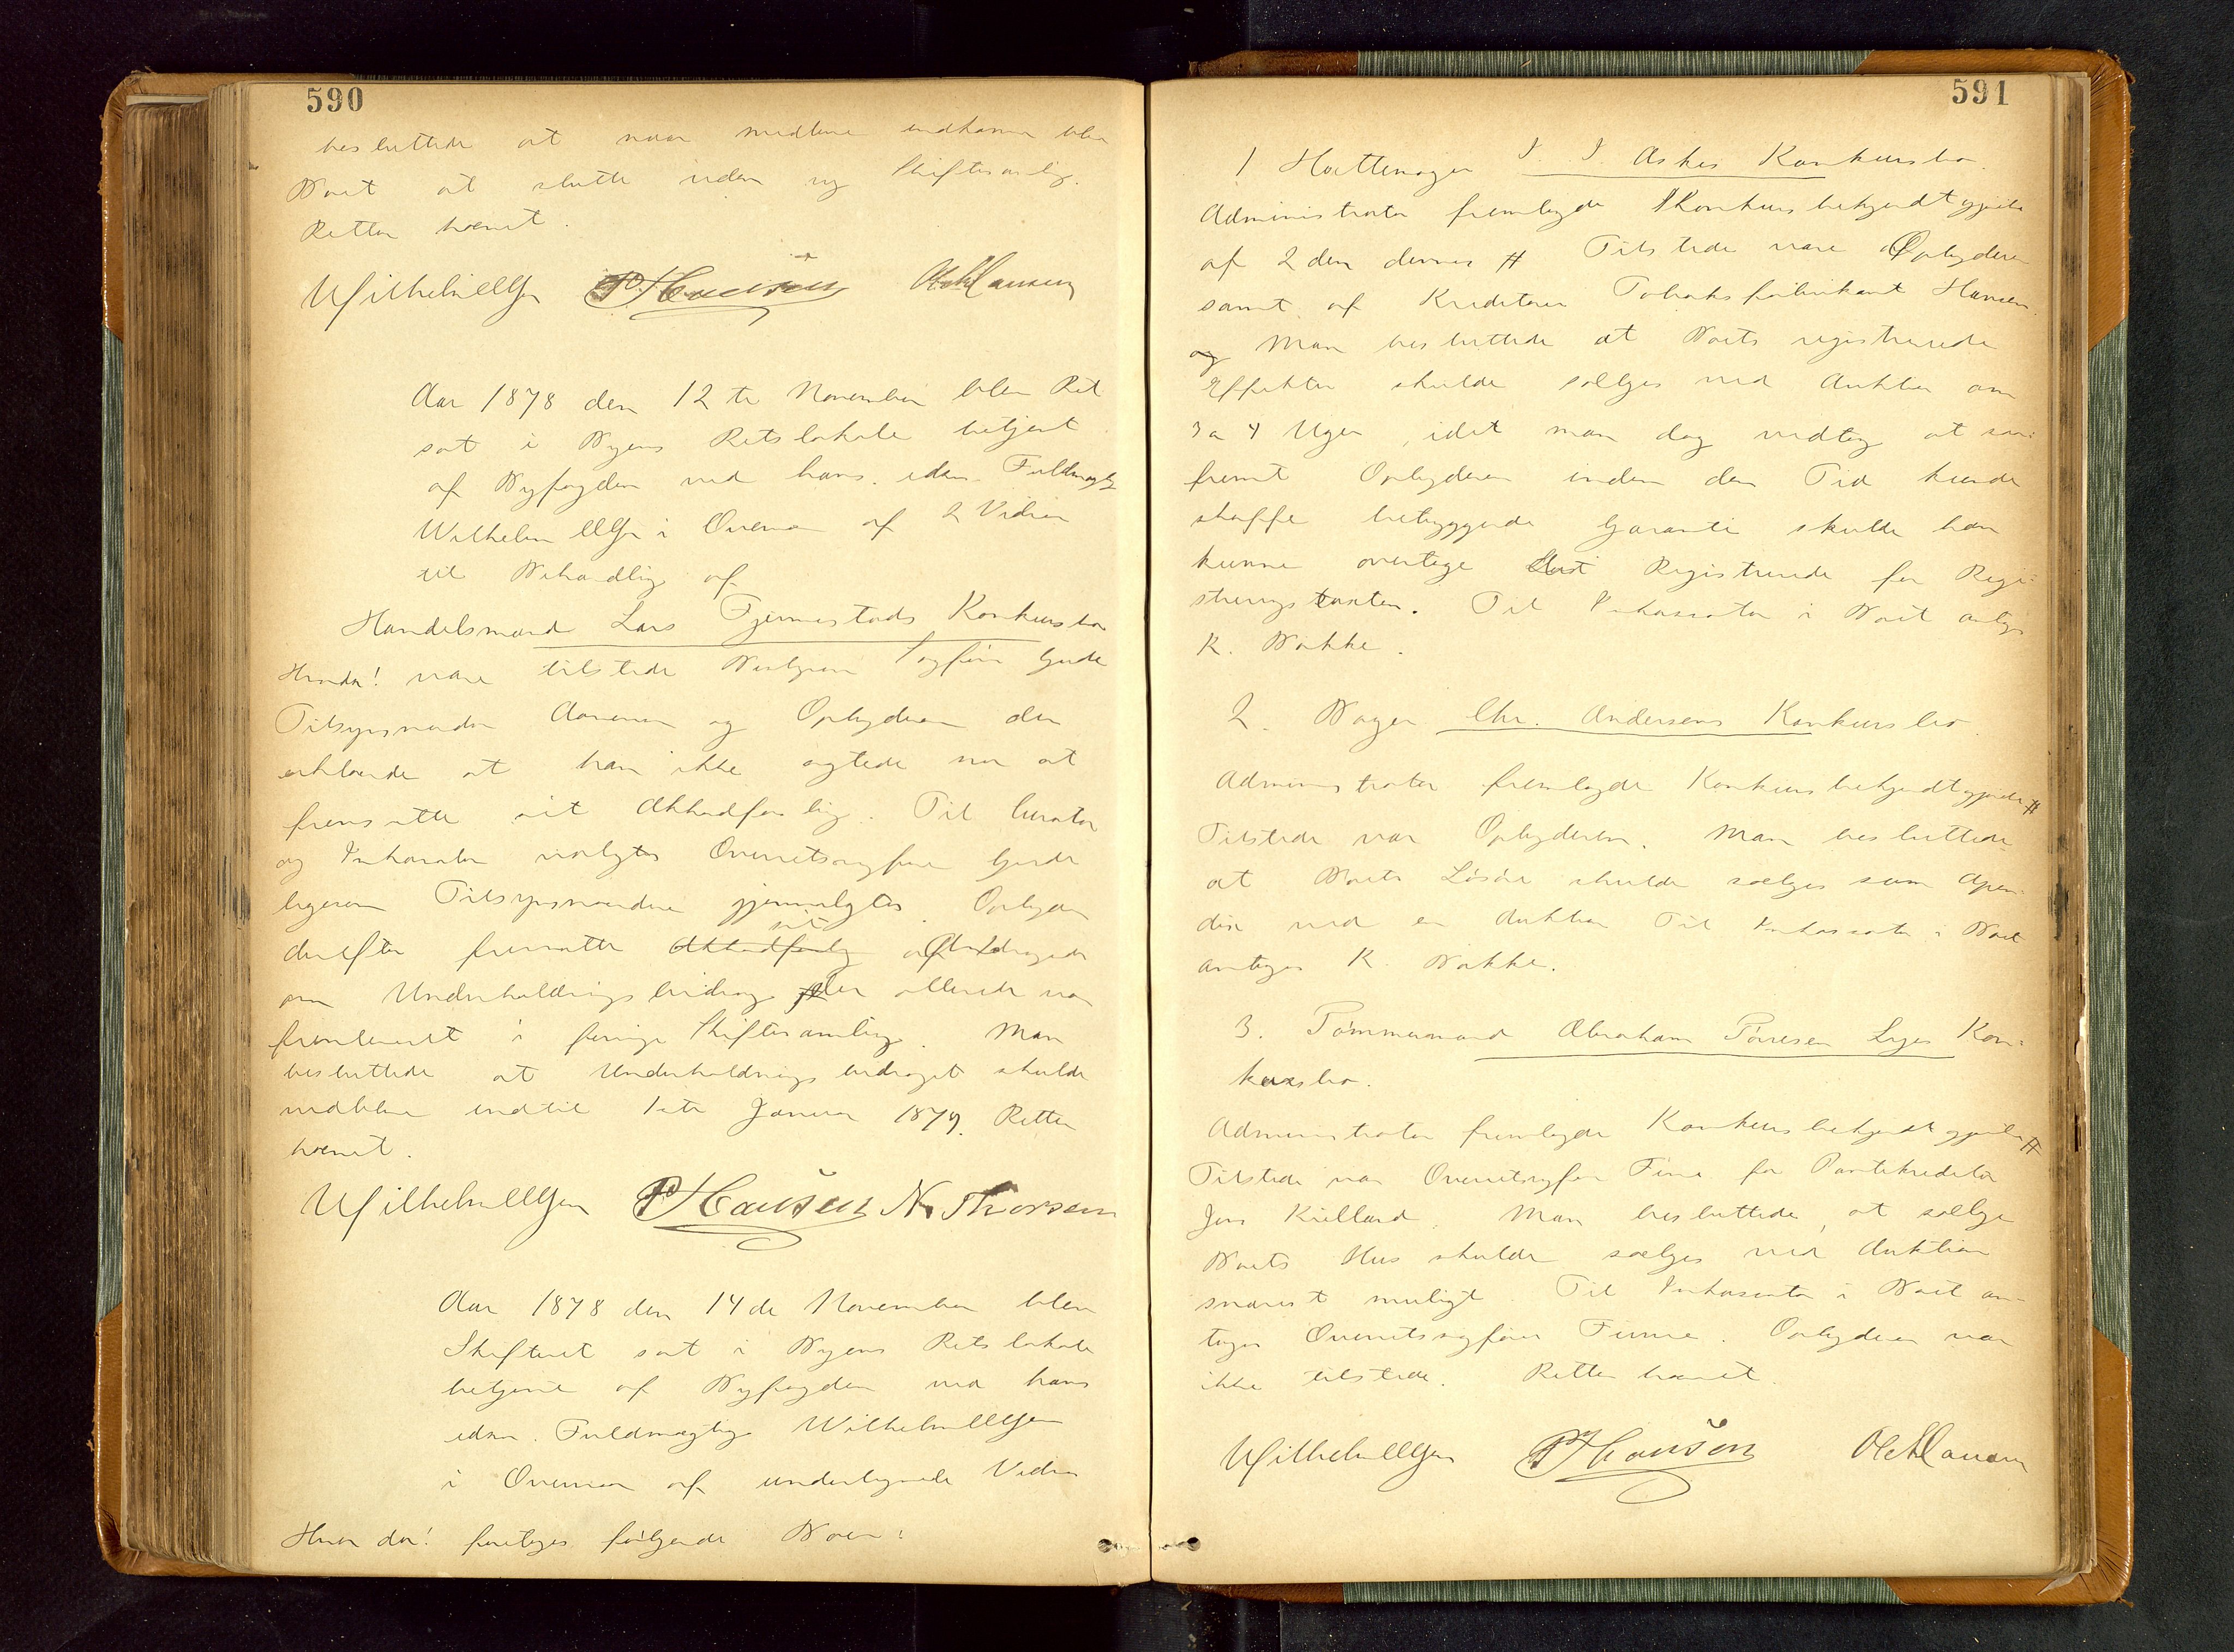 590
besluttede at naar midlene indkommer blev
Boet at slutte uden ny Skiftesamlig.
Retten hævet.
Wilhelm Ellefsen P Hansen O A Hansen
Aar 1878 den 12te November blev Ret
sat i Byens Retslokale betjent
af Byfogden ved hans edsv. Fuldmægtig
Wilhelm i Overvær af 2 Vidner
til Behandlig af
Handelsmand Lars Fjermestads Konkursbo
Hvorda! vare tilstede Bestyreren Sagfører Gjerde
Tilsynsmanden Aanensen og Opbyderen der
erklærede at han ikke agtede nu at
fremsætte sit Akkordforslag. Til Curator
og Inkassator valgtes Overretssagfører Gjerde
ligesom Tilsynsmændene gjenvalgtes. Opbyderen
derefter fremsatte sit Andragende
om Underholdnings bidrag der allerede var
fremkommet i forrige Skiftesamling. Man
besluttede at Underholdnings bidraget skulde
vedblive indtil 1ste Januar 1879. Retten
hævet.
Wilhelm Ellefsen P Hansen N. Thorsen
Aar 1878 den 14de November blev
Skifteret sat i Byens Retslokale
betjent af Byfogden ved hans
edsv. Fuldmægtig Wilhelm
i Overvær af underskrevne Vidner
Hvor da! foretoges følgende Boer:
591
1 Hattemager J. J. Askes Konkursbo.
Administrator fremlagde Konkursbekjendtgjørelse
af 2den dennes # Tilstede vare Opbyderen
samt af Kreditorer Tobaksfabrikant Hansen.
og Man besluttede at Boets registrerede
Effekter skulde sælges ved Auktion om
3 a 4 Uger, idet man dog vedtog at saa-
fremt Opbyderen inden den Tid kunde
skaffe betryggende Garanti skulde han
kunne overtage det Registrerede for Regi-
streringstaxten. Til Inkassator i Boet antoges
K. Bakke.
2. Bager Chr. Andersens Konkursbo.
Administrator fremlagde Konkursbekjendtgjørelse #
Tilstede var Opbyderen. Man besluttede
at Boets Løsøre skulde sælges som Apen-
dix ved en Auktion Til Inkassator i Boet
antoges K. Bakke.
3. Tømmermand Abraham Tørresen Lyges Kon-
kursbo.
Administrator fremlagde Konkursbekjendtgjørelse #
Tilstede var Overretssagfører Finne for Pantekreditor
Jens Kielland. Man besluttede, at sælge
Boets Hus skulde sælges ved Auktion
snarest muligt. Til Inkassator i Boet an-
toges Overretssagfører Finne. Opbyderen var
ikke tilstede. Retten hævet.
Wilhelm Ellefsen P Hansen O A Hansen